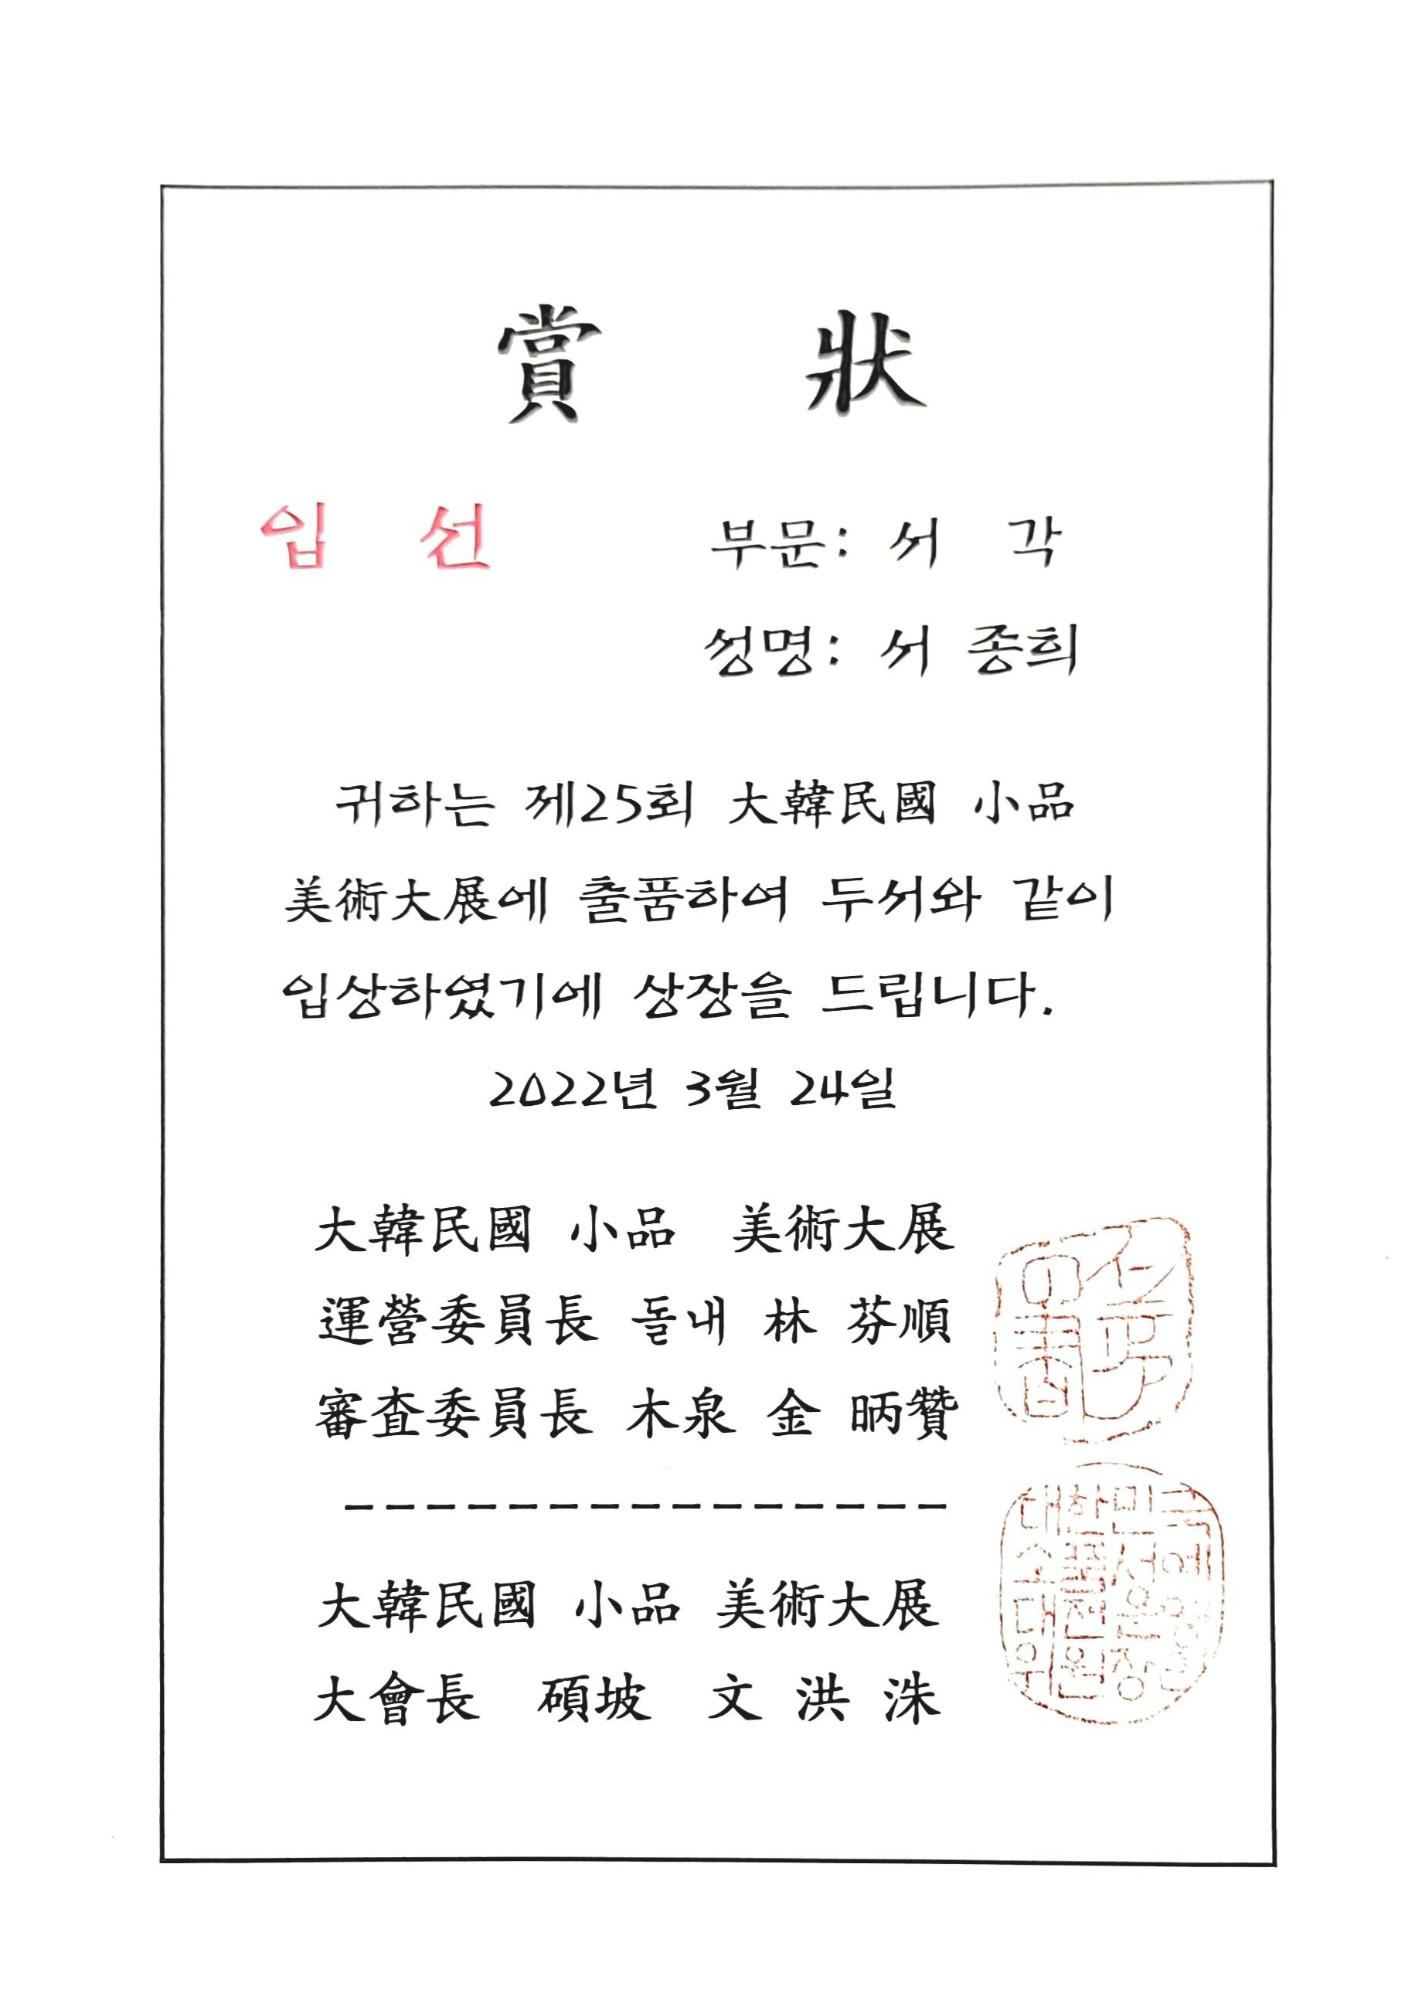 賞 狀
입 선 부문: 서 각
성명: 서 종희
귀하는 제25회 大韓民國 小品
美術大展에 출품하여 두서와 같이
입상하였기에 상장을 드립니다.
2022년 3월 24일
大韓民國 小品 美術大展
運營委員長 돌내 林 芬順
審査委員長 木泉 金 昞贊
大韓民國 小品 美術大展
大會長 碩坡 文 洪 洙